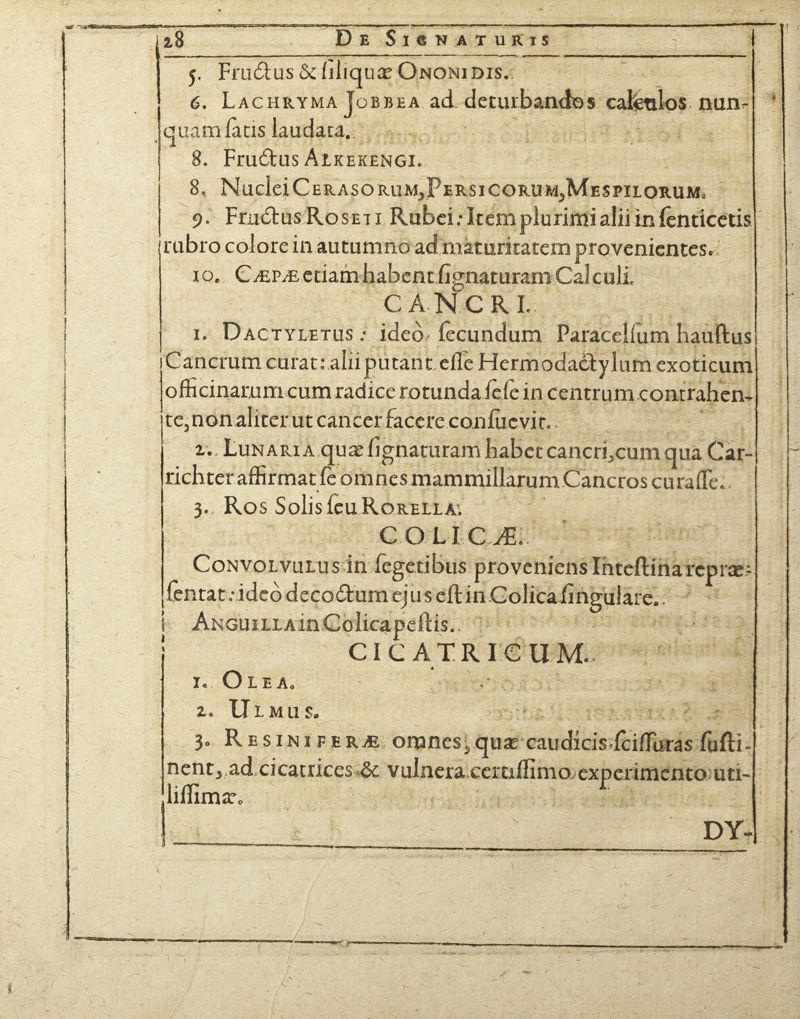 28 DE SIGNATURIS
5. Fructus & ſiliquæ ONONIDIS.
6. LACHRYMA JOBBEA ad deturbandos calculos nun-
quam ſatis laudata.
8. Fructus ALKEKENGI.
8. Nuclei CERASORUM, PERSICORUM, MESPILORUM.
9. Fructus ROSETI Rubei: Item plurimi alii in ſenticetis
rubro colore in autumno ad maturitatem provenientes.
10. CÆPÆ etiam habent ſignaturam Calculi.
CANCRI.
1. DACTYLETUS: ideò ſecundum Paracelſum hauſtus
Cancrum curat: alii putant eſſe Hermodactylum exoticum
officinarum cum radice rotunda ſeſe in centrum contrahen-
te, non aliter ut cancer facere conſuevit.
2. LUNARIA quæ ſignaturam habet cancri, cum qua Car-
richter affirmat ſe omnes mammillarum Cancros curaſſe.
3. Ros Solis ſeu RORELLA.
COLICÆ.
CONVOLVULUS in ſegetibus proveniens Inteſtina repræ-
ſentat: ideò decoctum ejus eſt in Colica ſingulare.
ANGUILLA in Colica peſtis.
CICATRICUM.
1. OLEA.
2. ULMUS.
3. RESINIFERÆ omnes, quæ caudicis ſciſſuras ſuſti-
nent, ad cicatrices & vulnera certiſſimo experimento uti-
liſſimæ.
DY-